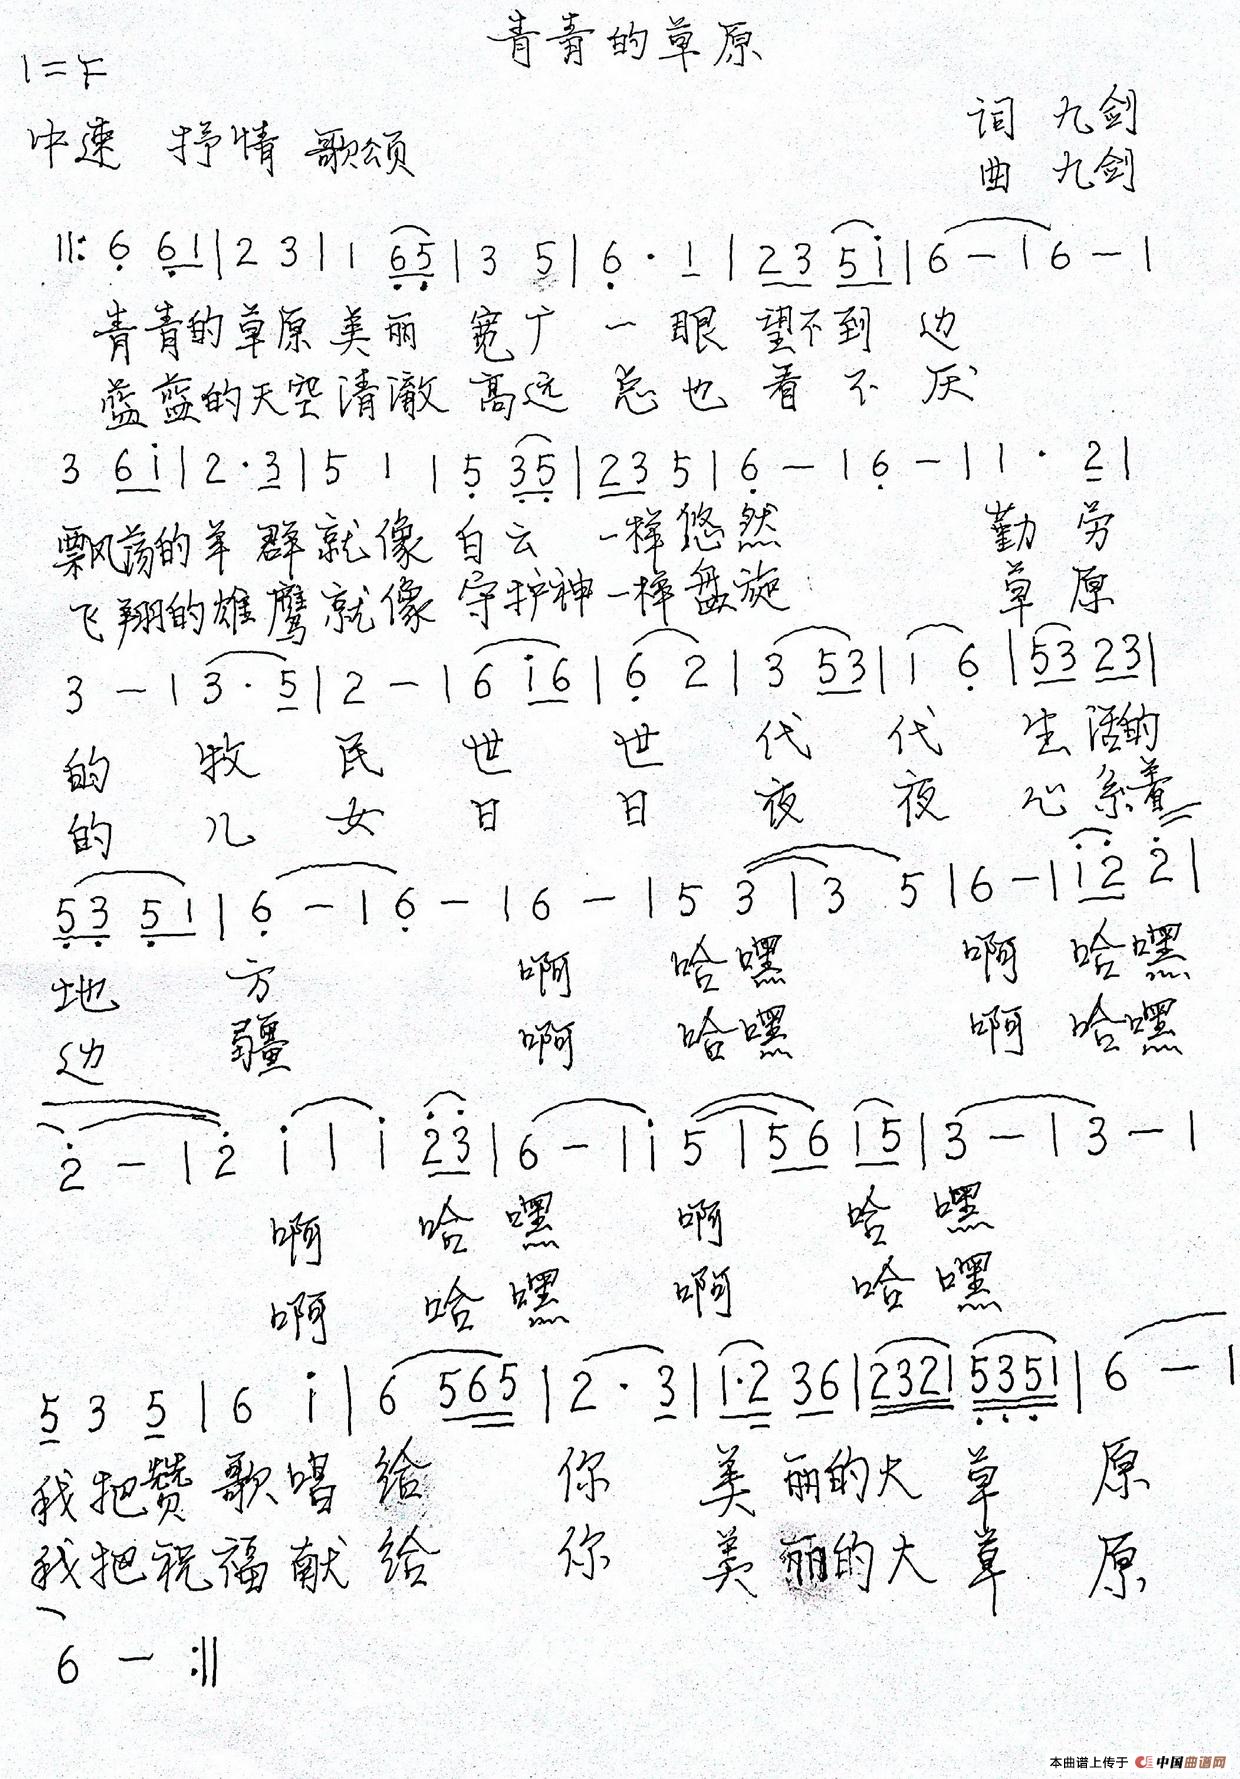 青青的草原
1=F
中速 抒情 歌颂
词 九剑
曲 九剑
||: 6̣ 6̣ 1 | 2 3 | 1 6̣ 5̣ | 3 5 | 6̣ · 1 | 2 3 5 i | 6 — | 6 — |
青青的草原美丽 宽广 一眼 望不到 边
蓝蓝的天空清澈 高远 总也看不厌
3 6 i | 2 · 3 | 5 1 | 5̣ 3̣ 5̣ | 2 3 5 | 6̣ — | 6̣ — | 1 · 2 |
飘荡的羊群就像 白云 一样悠然 勤劳
飞翔的雄鹰就像 守护神一样盘旋 草原
3 — | 3 · 5 | 2 — | 6 i 6 | 6̣ 2 | 3 5 3 | 1 6̣ | 5 3 2 3 |
的 牧 民 世 世 代 代 生 活的
的 儿 女 日 日 夜 夜 心 系着
5̣ 3̣ 5̣ 1 | 6̣ — | 6̣ — | 6 — | 5 3 | 3 5 | 6 — | i 2̇ 2̇ |
地 方 啊 哈嘿 啊 哈嘿
边 疆 啊 哈嘿 啊 哈嘿
2̇ — | 2̇ i | i 2̇ 3̇ | 6 — | i 5 | 5 6 1 5 | 3 — | 3 — |
啊 哈嘿 啊 哈嘿
啊 哈嘿 啊 哈嘿
5 3 5 | 6 i | 6 5 6 5 | 2 · 3 | 1 · 2 3 6 | 2 3 2 1 5̣ 3̣ 5̣ 1 | 6 — |
我把赞歌唱给 你 美丽的大草 原
我把祝福献给 你 美丽的大草 原
6 — :||
本曲谱上传于 中国曲谱网